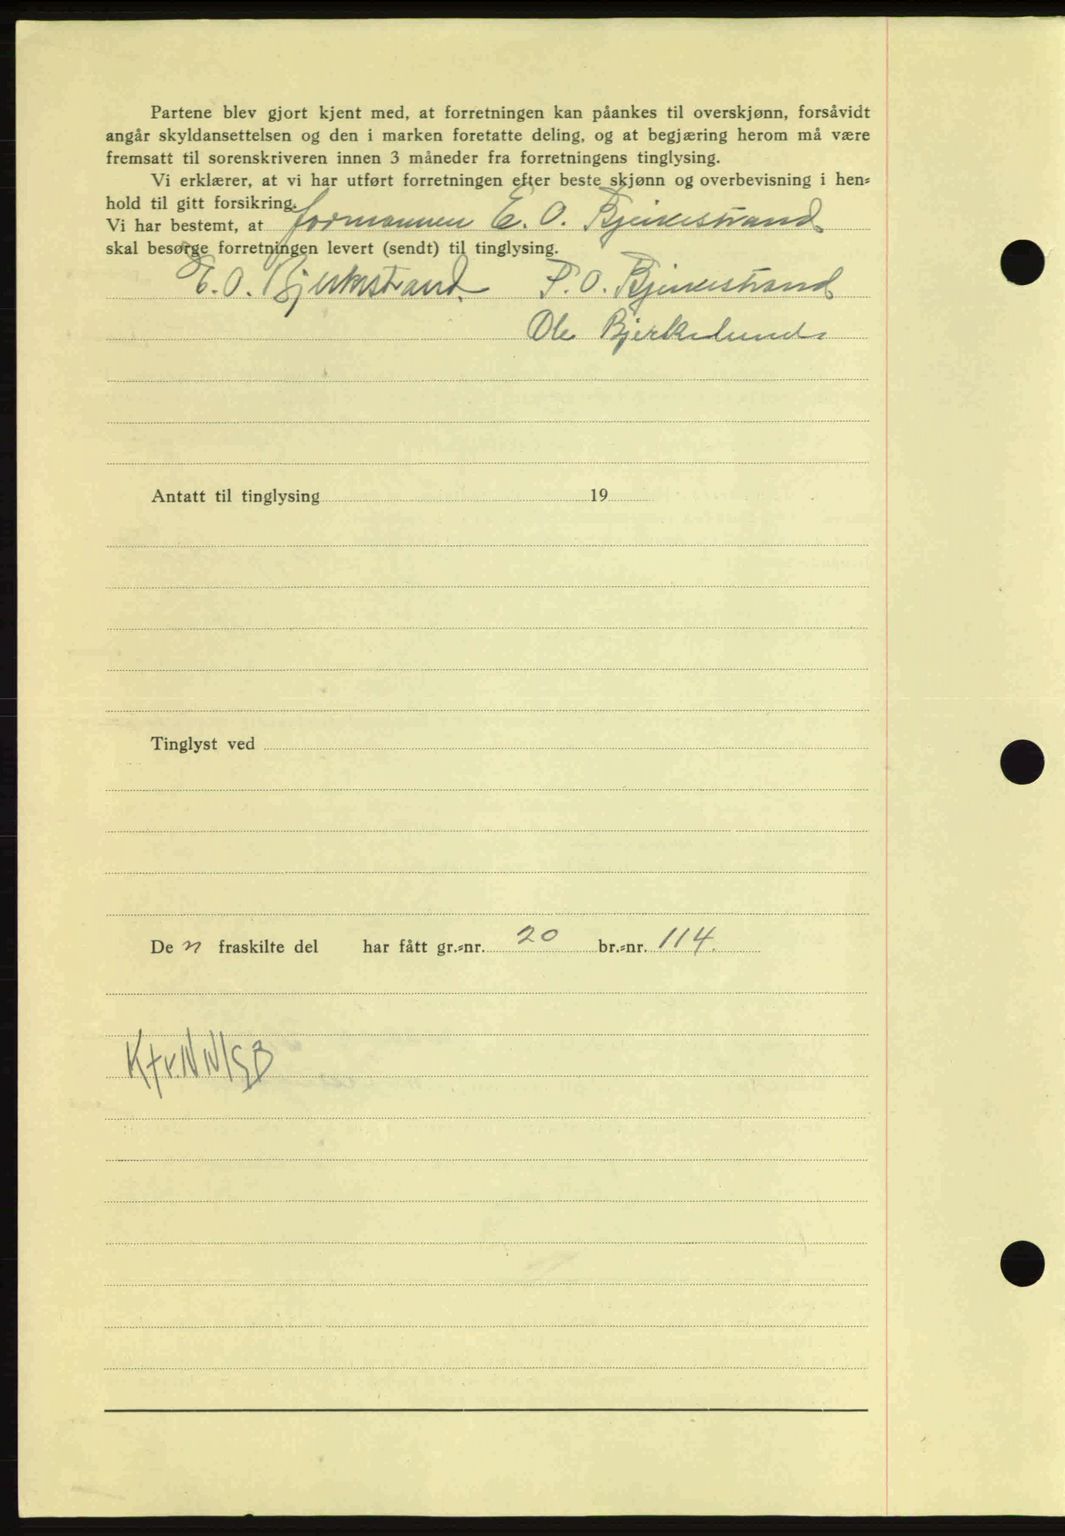 Partene blev gjort kjent med, at forretningen kan påankes til overskjønn, forsåvidt
angår skyldansettelsen og den i marken foretatte deling, og at begjæring herom må være
fremsatt til sorenskriveren innen 3 måneder fra forretningens tinglysing.
Vi erklærer, at vi har utført forretningen efter beste skjønn og overbevisning i hen=
hold til gitt forsikring.
Vi har bestemt, at formannen E. O. Bjerkestrand
skal besørge forretningen levert (sendt) til tinglysing.
E. O. Bjerkestrand. P. O. Bjerkestrand
Ole Bjerkelund.
Antatt til tinglysing 19
Tinglyst ved
De n fraskilte del har fått gr.=nr. 20 br.=nr. 114.